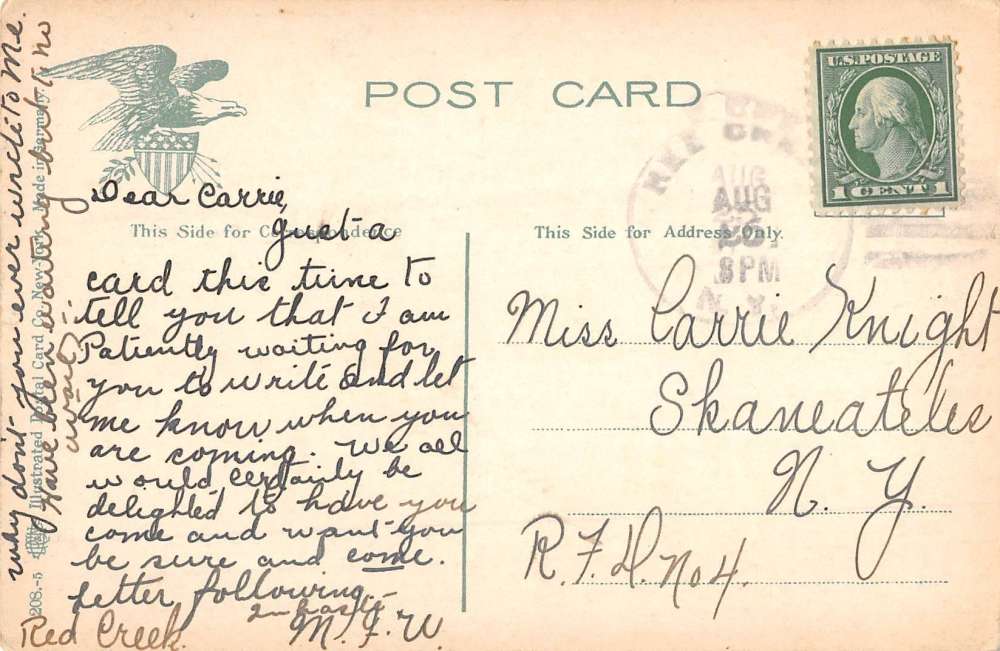 POST CARD
U.S. POSTAGE
1 CENT 1
RED CREEK
AUG
8 PM
N.Y.
This Side for Correspondence
This Side for Address Only.
Dear Carrie,
Just a
card this time to
tell you that I am
Patiently waiting for
you to write and let
me know when you
are coming. We all
would certainly be
delighted to have you
come and want you
be sure and come.
Letter following.
In haste
M. F. W
Red Creek.
why don't you ever write to me.
Have been waiting but no
Miss Carrie Knight
Skaneateles
N. Y.
R. F. D. No 4.
Illustrated Postal Card Co., New-York. Made in Germany.
208.-5